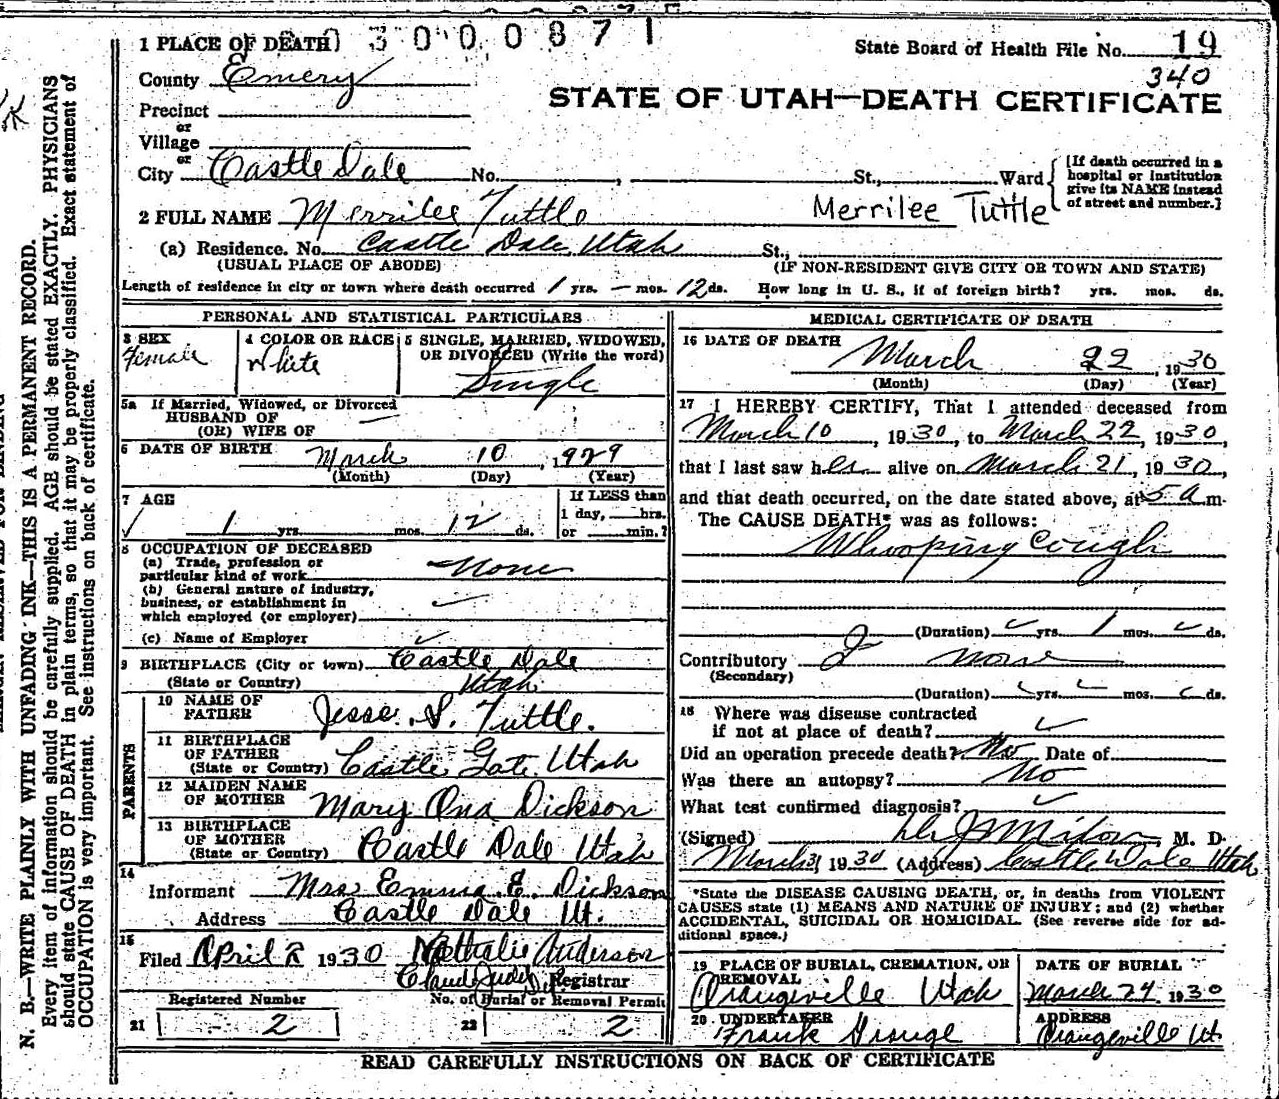 3000871
1 PLACE OF DEATH
State Board of Health File No. 19
County Emery
340
STATE OF UTAH—DEATH CERTIFICATE
Precinct
or
Village
or
City Castle Dale No. , St., Ward
[If death occurred in a
hospital or institution
give its NAME instead
of street and number.]
2 FULL NAME Merrilee Tuttle Merrilee Tuttle
(a) Residence. No. Castle Dale, Utah St.,
(USUAL PLACE OF ABODE) (IF NON-RESIDENT GIVE CITY OR TOWN AND STATE)
Length of residence in city or town where death occurred 1 yrs. — mos. 12 ds. How long in U. S., if of foreign birth? yrs. mos. ds.
PERSONAL AND STATISTICAL PARTICULARS
3 SEX 4 COLOR OR RACE 5 SINGLE, MARRIED, WIDOWED,
OR DIVORCED (Write the word)
Female White Single
5a If Married, Widowed, or Divorced
HUSBAND OF
(OR) WIFE OF —
6 DATE OF BIRTH March 10, 1929
(Month) (Day) (Year)
7 AGE If LESS than
1 day, hrs.
1 yrs. mos. 12 ds. or min.?
8 OCCUPATION OF DECEASED
(a) Trade, profession or
particular kind of work None
(b) General nature of industry,
business, or establishment in
which employed (or employer)
(c) Name of Employer
9 BIRTHPLACE (City or town) Castle Dale
(State or Country) Utah
PARENTS
10 NAME OF
FATHER Jesse S. Tuttle.
11 BIRTHPLACE
OF FATHER
(State or Country) Castle Gate, Utah
12 MAIDEN NAME
OF MOTHER Mary Ona Dickson
13 BIRTHPLACE
OF MOTHER
(State or Country) Castle Dale Utah
14
Informant Mrs Emma E. Dickson
Address Castle Dale Ut.
15
Filed April 2 1930 Nathalie Anderson
Registrar
Registered Number No. of Burial or Removal Permit
21 2 22 2
MEDICAL CERTIFICATE OF DEATH
16 DATE OF DEATH
March 22, 1930
(Month) (Day) (Year)
17 I HEREBY CERTIFY, That I attended deceased from
March 10, 1930, to March 22, 1930,
that I last saw her alive on March 21, 1930,
and that death occurred, on the date stated above, at 5 a m.
The CAUSE DEATH* was as follows:
Whooping Cough
(Duration) yrs. 1 mos. ds.
Contributory none
(Secondary)
(Duration) yrs. mos. ds.
18 Where was disease contracted
if not at place of death?
Did an operation precede death? No Date of
Was there an autopsy? No
What test confirmed diagnosis?
(Signed) M. D.
March 31, 1930 (Address) Castle Dale Utah
*State the DISEASE CAUSING DEATH, or, in deaths from VIOLENT
CAUSES state (1) MEANS AND NATURE OF INJURY; and (2) whether
ACCIDENTAL, SUICIDAL OR HOMICIDAL. (See reverse side for ad-
ditional space.)
19 PLACE OF BURIAL, CREMATION, OR
REMOVAL
Orangeville Utah
DATE OF BURIAL
March 24, 1930
20 UNDERTAKER
Frank Grange
ADDRESS
Orangeville Ut.
READ CAREFULLY INSTRUCTIONS ON BACK OF CERTIFICATE
N. B.—WRITE PLAINLY WITH UNFADING INK—THIS IS A PERMANENT RECORD.
Every item of information should be carefully supplied. AGE should be stated EXACTLY. PHYSICIANS
should state CAUSE OF DEATH in plain terms, so that it may be properly classified. Exact statement of
OCCUPATION is very important. See instructions on back of certificate.